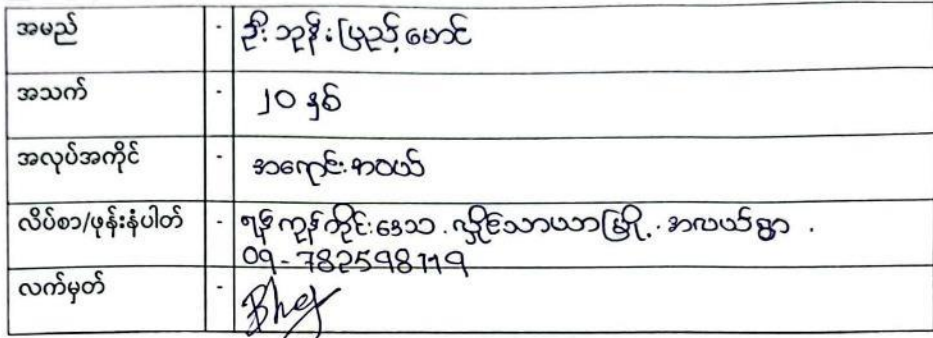 အမည် - ဦးဘုန်းပြည့်မောင်
အသက် - ၂၀ နှစ်
အလုပ်အကိုင် - အရောင်းအဝယ်
လိပ်စာ/ဖုန်းနံပါတ် - ရန်ကုန်တိုင်းဒေသ . လှိုင်သာယာမြို့ . အလယ်ရွာ .
09-782598119
လက်မှတ် -